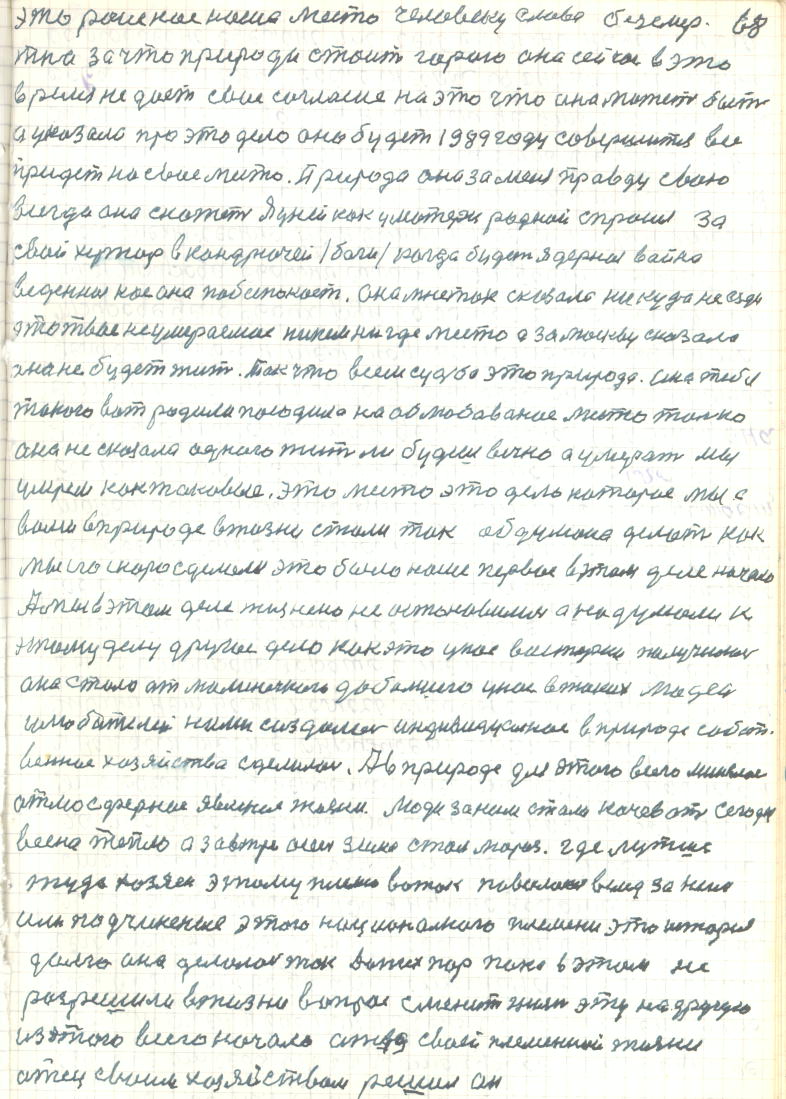 это райское наша место человеку слава безсмер. 68
тна за что природи стоит горою она сейчас в это
время не дает свое согласие на это что она может быт
а указала про это дело оно будет 1989 году совершится все
придет на свае место. Природа она за меня правду свою
всегда она скажет Я у ней как у матери родной спросил за
свой хутор в кондрючей /боги/ когда будет ядерная вайна
веденна нас она побиспокоит. Она мне так сказала никуда не езди
это твое неумераемое никем нигде место а за москву сказала
она не будет жит. Так что всем судьба это природа. Она тебя
такого вот родила посодила на место толко
она не сказала одного жит ли будиш вечно а умерат мы
умрем как таковые. это место это дело каторае мы с
вами в природе в жизни стали так делат как
мы его скоро сделали это было наше первое в этом деле начало
А мы в этом деле жизнено не астановилися а надумали к
этому делу другое дело как это у нас получилос
она стало от малинкого до болшего у нас в таких людей
нами создалос индивидуалное в природе собст.
венное хозяйства сделалос. А в природе для этого всего
атмосферное явление жизни. люди за ним стали кочеват сегодня
весна тепло а завтра зима стал мороз. где лутше
туда хозяен этому племю вслед за ним
или подчинение этого национолного племени это история
долго она делалас так до тех пор пака в этом не
разрешили в жизни вопрос сменит эту на другую
из этого всего начало свой племенной жизни
атец своим хозяйством решил он